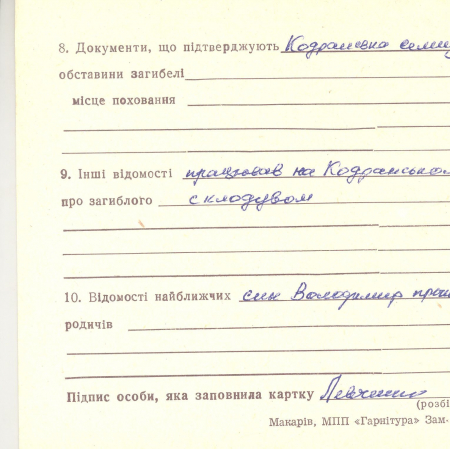 8. Документи, що підтверджують Кодранська
обставини загибелі
місце поховання
9. Інші відомості працював на Кодранськом
про загиблого склодувом
10. Відомості найближчих син Володимир
родичів
Підпис особи, яка заповнила картку Левченко
(розбі
Макарів, МПП «Гарнітура» Зам-